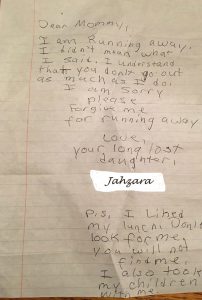 Dear Mommy,
I am Running away.
I didn't mean what
I said. I understand
that you dont go out
as much as I do.
I am sorry
please
forgive me
for running away
Love,
your long lost
daughter,
Jahzara
P.S. I liked
my lunch. Don't
look for me,
you will not
find me.
I also took
my children
with me.